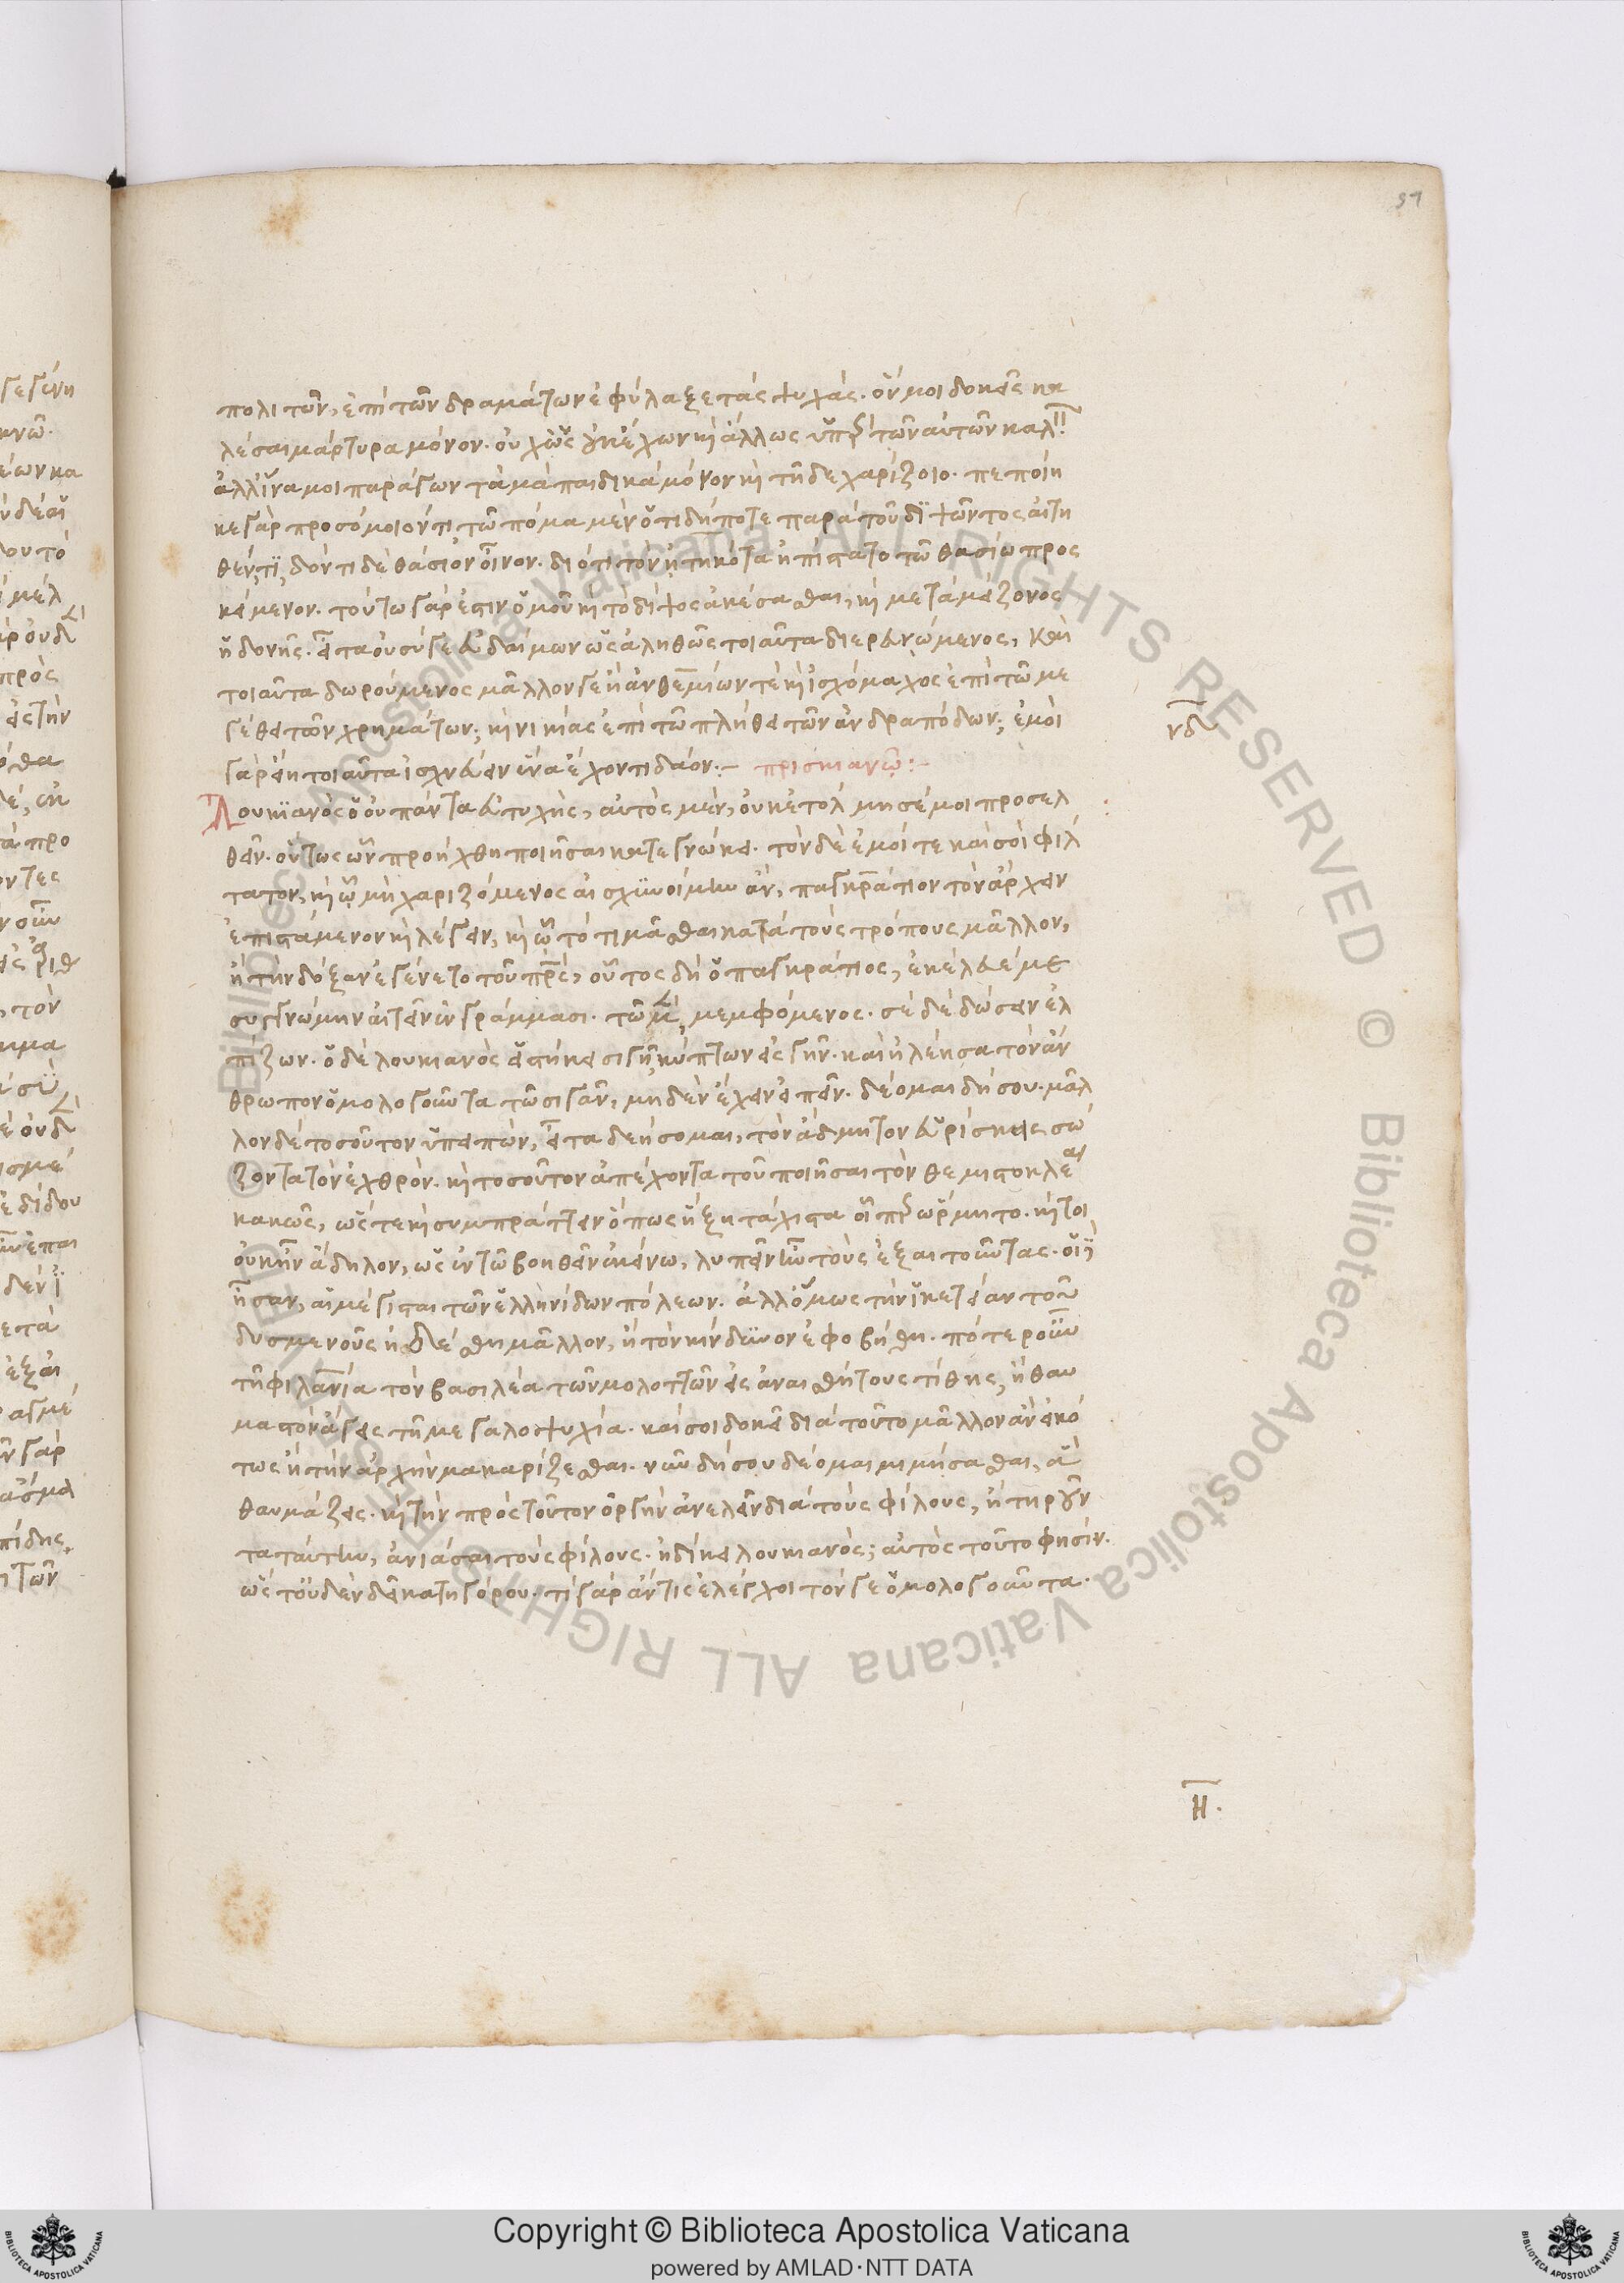 91
πολιτῶν, ἐπὶ τῶν δραμάτων ἐφύλαξε τὰς ψυχάς. οὔ μοι δοκεῖς κα
λέσαι μάρτυρα μόνον. οὐχ ὡς οὐκ ἔχων κὶ ἄλλως ὑπὲρ τῶν αὐτῶν καλ
ἀλλ' ἵνα μοι παράγων τἀμὰ παιδικὰ μόνον κὶ τῆδε χαρίζοιο. πεποίη
κε γὰρ προσόμοιόν τι, τῶ πόμα μὲν ὁτιδήποτε παρὰ τοῦ διψῶντος αἰτη
θέντι, δόντι δὲ θάσιον οἶνον. διότι τὸν ἠτηκότα ἠπίστατο τῶ θασίω προσ
κείμενον. τούτω γάρ ἐστιν ὁμοῦ κὶ τὸ δίψος ἀκέσασθαι, κὶ μετὰ μείζονος
ἡδονῆς. εἶτα οὐ σύ γε εὐδαίμων ὡς ἀληθῶς τοιαῦτα διερευνώμενος, καὶ
τοιαῦτα δωρούμενος μᾶλλόν γε ἢ ἀνθεμίων τὲ κὶ ἰσχόμαχος ἐπὶ τῶ με
γέθει τῶν χρημάτων; κὶ νικίας ἐπὶ τῶ πλήθει τῶν ἀνδραπόδων; ἐμοὶ
νδ
γὰρ εἴη τοιαῦτα ἰσχνεύειν ἕνα ἔχοντι δᾶον:– πρισκιανῶ:–
Λουκιανὸς ὁ οὐ πάντα εὐτυχὴς, αὐτὸς μὲν, οὐκ ἐτόλμησέ μοι προσελ
θεῖν. οὕτως ὧν προήχθη ποιῆσαι κατεγνώκει. τὸν δὲ ἐμοί τε καὶ σοὶ φίλ
τατον, κὶ ὧ μὴ χαριζόμενος αἰσχυνοίμην ἂν, παγκράτιον τὸν ἄρχειν
ἐπιστάμενον κὶ λέγειν, κὶ ὧ τὸ τιμᾶσθαι κατὰ τοὺς τρόπους μᾶλλον,
ἢ τὴν δόξαν ἐγένετο τοῦ πρς, οὗτος δὴ ὁ παγκράτιος, ἐκέλευέ με
συγγνώμην αἰτεῖν ἐν γράμμασι. τῶ μὲν, μεμφόμενος. σὲ δὲ δώσειν ἐλ
πίζων. ὁ δὲ λουκιανὸς εἱστήκει σιγῆ, κύπτων εἰς γῆν. καὶ ἠλέησα τὸν ἄν
θρωπον ὁμολογοῦντα τῶ σιγᾶν, μηδὲν ἔχειν εἰπεῖν. δέομαι δή σου. μᾶλ
λον δὲ τοσοῦτον ὑπειπὼν, εἶτα δεήσομαι, τὸν ἄδμητον εὑρίσκεις σώ
ζοντα τὸν ἐχθρὸν. κὶ τοσοῦτον ἀπέχοντα τοῦ ποιῆσαι τὸν θεμιστοκλέα
κακῶς, ὥστε κὶ συμπράττειν ὅπως ἥξῃ τάχιστα οἷπερ ὥρμητο. κὶ τοι
οὐκ ἦν ἄδηλον, ὡς ἐν τῶ βοηθεῖν ἐκείνω, λυπεῖν ἦν τοὺς ἐξαιτοῦντας. οἳ
ἦσαν, αἱ μέγισται τῶν ἑλληνίδων πόλεων. ἀλλ' ὅμως τὴν ἱκετείαν τοῦ
δυσμενοῦς ᾐδέσθη μᾶλλον, ἢ τὸν κίνδυνον ἐφοβήθη. πότερ' οὖν
τῆ φιλανία τὸν βασιλέα τῶν μολοττῶν εἰς ἀναισθήτους τίθης, ἢ θαυ
μαστὸν ἄγεις τῆ μεγαλοψυχία. καί σοι δοκεῖ διὰ τοῦτο μᾶλλον ἂν εἰκό
τως ἢ τὴν ἀρχὴν μακαρίζεσθαι. νῦν δή σου δέομαι μιμήσασθαι, ἃ
θαυμάζεις. κὶ τὴν πρὸς τοῦτον ὀργὴν ἀνελεῖν διὰ τοὺς φίλους, ἢ τηροῦν
τα ταύτην, ἀνιάσαι τοὺς φίλους. ἠδίκει λουκιανὸς; αὐτὸς τοῦτο φησίν.
ὥστ' οὐδὲν δεῖ κατηγόρου. τί γὰρ ἄν τις ἐλέγχοι τόν γε ὁμολογοῦντα.
Η.
Copyright © Biblioteca Apostolica Vaticana
powered by AMLAD·NTT DATA